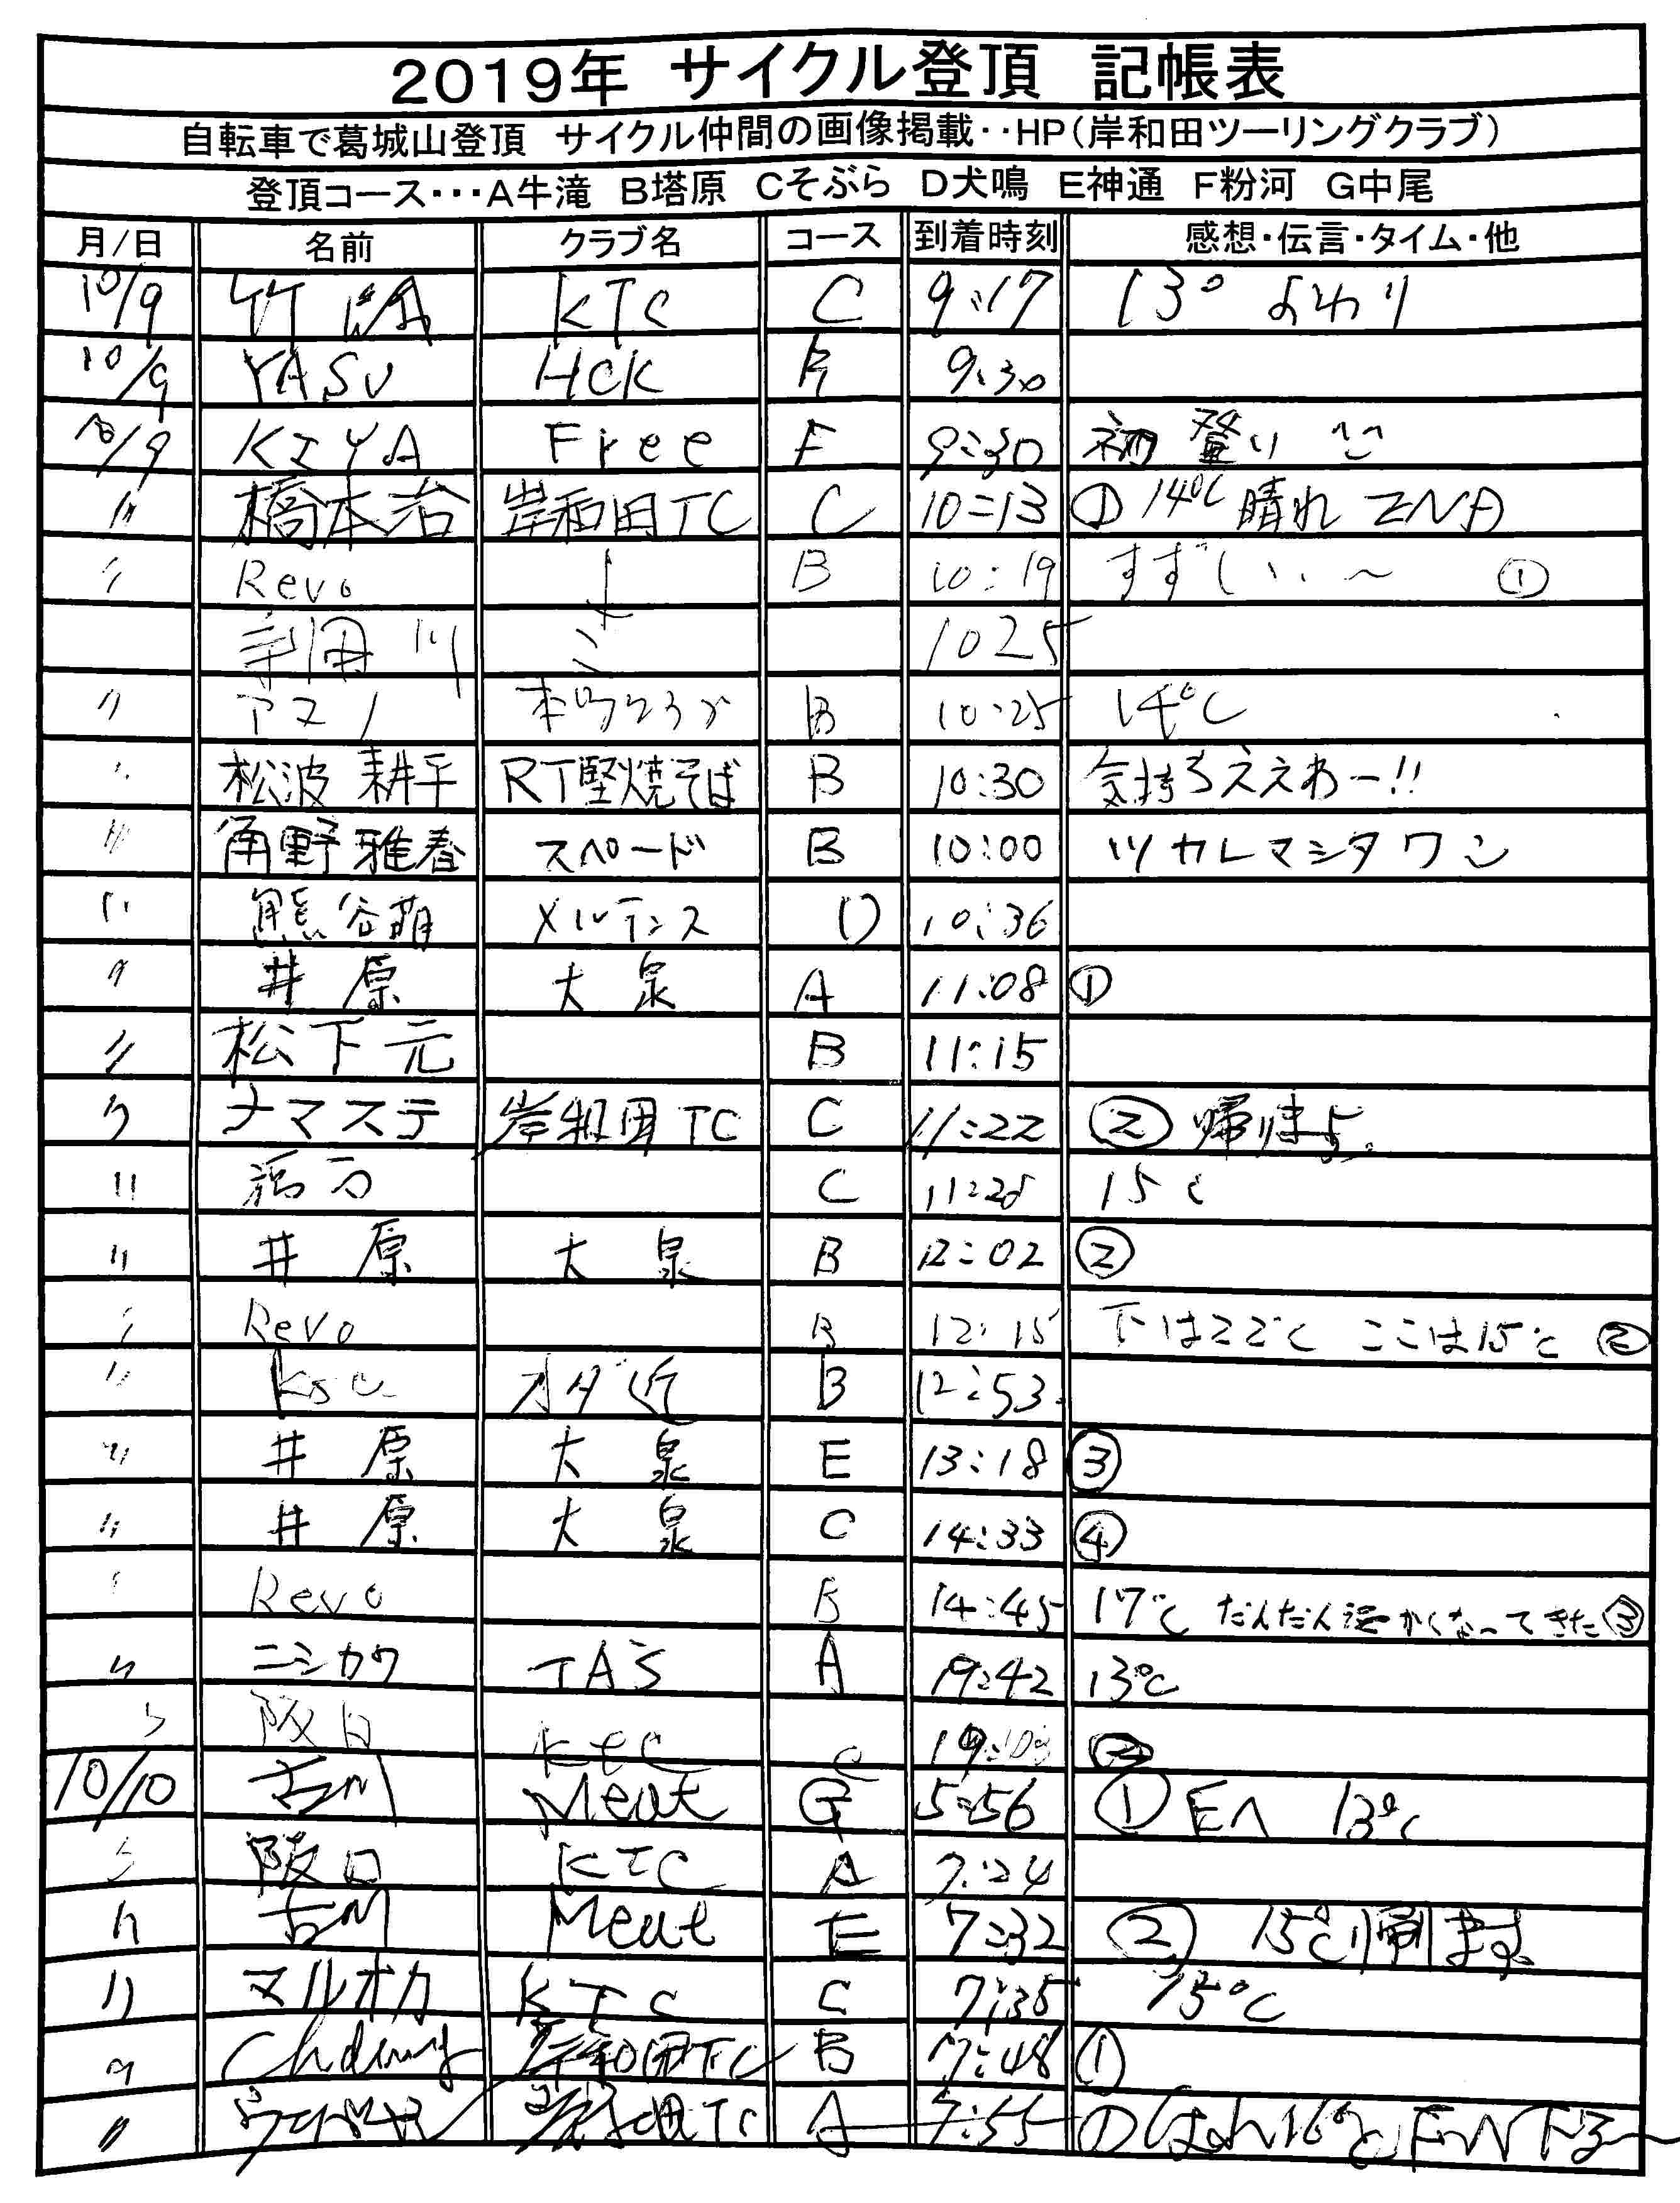 2019年 サイクル登頂 記帳表
自転車で葛城山登頂 サイクル仲間の画像掲載‥HP(岸和田ツーリングクラブ)
登頂コース･･･A牛滝 B塔原 Cそぶら D犬鳴 E神通 F粉河 G中尾
月/日 名前 クラブ名 コース 到着時刻 感想・伝言・タイム・他
10/9 KTC C 9:17 13°
10/9 YASU HCK 9:30
10/9 KIYA Free F 9:30 初登り
〃 橋本治 岸和田TC C 10=13 ① 14℃ 晴れ
〃 Revo ↓ B 10:19 すずしい〜 ①
1025
〃 アマノ B 10:25 14℃
〃 松波 耕平 RT堅焼そば B 10:30 気持ちええわー!!
〃 角野 雅春 スペード B 10:00 ツカレマシタワン
〃 熊谷萌 メルテンス D 10:36
〃 井原 大泉 A 11:08 ①
〃 松下 元 B 11:15
〃 ナマステ 岸和田TC C 11:22 ②
〃 C 15
〃 井原 大泉 B 12:02 ②
〃 Revo B 12:15 下は22℃ ここは15℃ ②
〃 B 12:53
〃 井原 大泉 E 13:18 ③
〃 井原 大泉 C 14:33 ④
〃 Revo B 14:45 17℃ だんだん かくなってきた③
〃 ニシカワ TAS A 19:42 13℃
〃 KTC C
10/10 古川 Meat G 5:56 ① Eへ 13℃
〃 阪口 KTC A 7:24
〃 古川 Meat E 7:32 ② 15℃ 帰ります
〃 マルオカ KTC C 7:35 15℃
〃 岸和田TC B 7:48 ①
〃 岸和田TC A 7:55 ① はれ 16℃